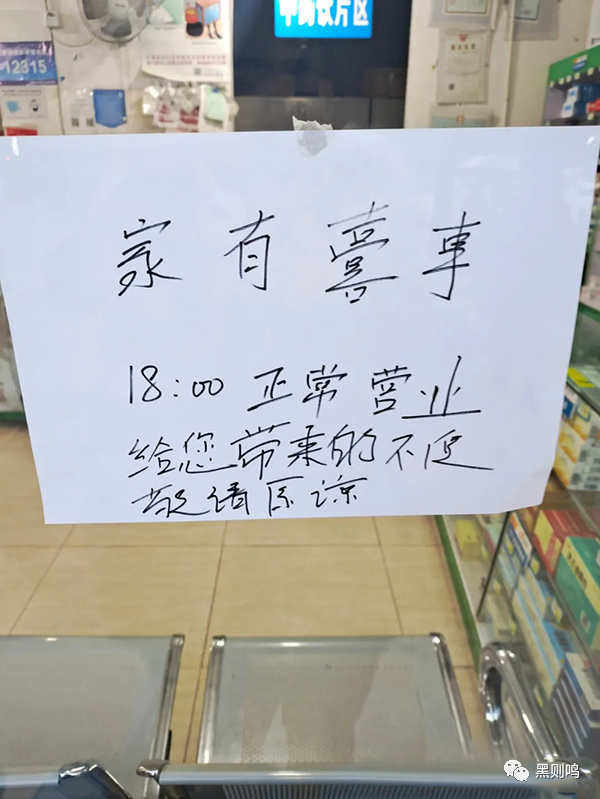 中药饮片区
12315
家有喜事
18:00 正常营业
给您带来的不便
敬请原谅
黑则鸣